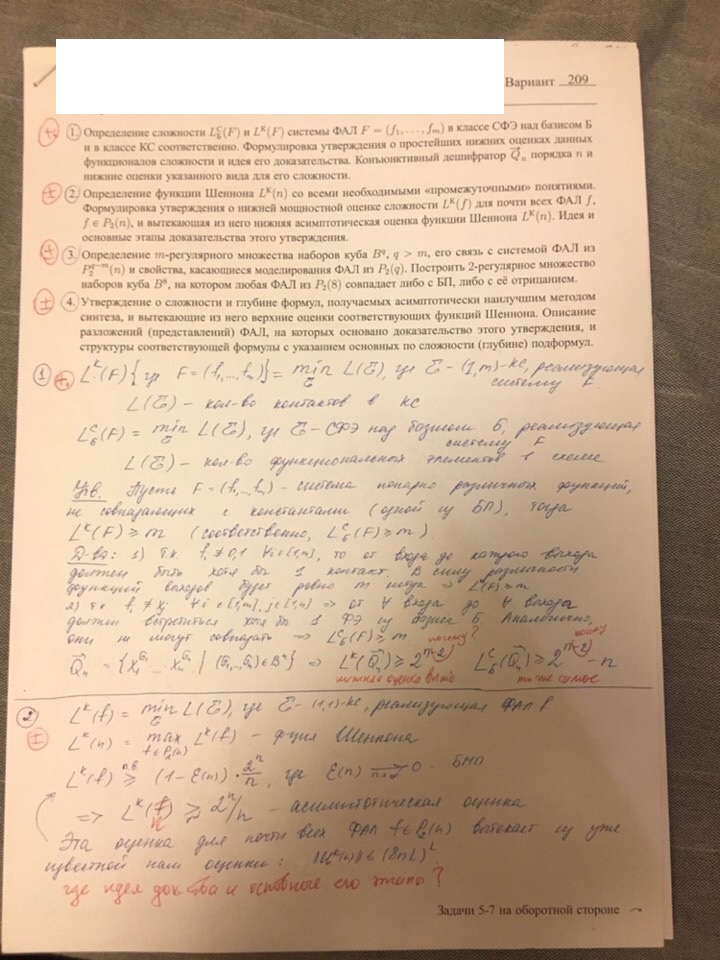 Вариант 209
1. Определение сложности L^C_Б(F) и L^K(F) системы ФАЛ F = (f₁, . . . , f_m) в классе СФЭ над базисом Б
и в классе КС соответственно. Формулировка утверждения о простейших нижних оценках данных
функционалов сложности и идея его доказательства. Конъюнктивный дешифратор Q⃗_n порядка n и
нижние оценки указанного вида для его сложности.
± 2. Определение функции Шеннона L^K(n) со всеми необходимыми «промежуточными» понятиями.
Формулировка утверждения о нижней мощностной оценке сложности L^K(f) для почти всех ФАЛ f,
f ∈ P₂(n), и вытекающая из него нижняя асимптотическая оценка функции Шеннона L^K(n). Идея и
основные этапы доказательства этого утверждения.
3. Определение m-регулярного множества наборов куба B^q, q > m, его связь с системой ФАЛ из
P₂^{q−m}(n) и свойства, касающиеся моделирования ФАЛ из P₂(q). Построить 2-регулярное множество
наборов куба B⁸, на котором любая ФАЛ из P₂(8) совпадает либо с БП, либо с её отрицанием.
± 4. Утверждение о сложности и глубине формул, получаемых асимптотически наилучшим методом
синтеза, и вытекающие из него верхние оценки соответствующих функций Шеннона. Описание
разложений (представлений) ФАЛ, на которых основано доказательство этого утверждения, и
структуры соответствующей формулы с указанием основных по сложности (глубине) подформул.
1 L^K(F) {где F = (f₁,...,f_m)} = min L(Σ), где Σ - (1,m)-КС, реализующая
систему F
L(Σ) - кол-во контактов в КС
L^C_Б(F) = min L(Σ), где Σ - СФЭ над базисом Б, реализующая
систему F
L(Σ) - кол-во функциональных элементов в схеме
Утв. Пусть F = (f₁,...,f_m) - система попарно различных функций,
не совпадающих с константами (одной из БП), тогда
L^K(F) ≥ m (соответственно, L^C_Б(F) ≥ m)
Д-во: 1) т.к. f_i ≠ 0,1 ∀i∈[1,m], то от входа до каждого выхода
должен быть хотя бы 1 контакт. В силу различности
функций выходов будет ровно m штук ⇒ L^K(F) ≥ m
2) т.к. f_i ≠ x_j ∀i∈[1,m], j∈[1,n] ⇒ от ∀ входа до ∀ выхода
должен встретиться хотя бы 1 ФЭ из базиса Б. Аналогично,
они не могут совпадать ⇒ L^C_Б(F) ≥ m почему?
почему
Q⃗_n = {x₁^{σ₁} ... x_n^{σ_n} | (σ₁,...,σ_n)∈B^n} ⇒ L^K(Q⃗_n) ≥ 2^{n-2} L^C_Б(Q⃗_n) ≥ 2^{n-2} - n
нижняя оценка выше то же самое
2 L^K(f) = min L(Σ), где Σ - (1,1)-КС, реализующая ФАЛ f
± L^K(n) = max L^K(f) - ф-ция Шеннона
f∈P₂(n)
L^K(f) ≥ (1-ε(n)) · 2^n/n, где ε(n) → 0 -
n→∞
⇒ L^K(n) ≳ 2^n/n - асимптотическая оценка
Эта оценка для почти всех ФАЛ f∈P₂(n) вытекает из уже
известной нам оценки: (8nL)^L
где идея док-ва и основные его этапы?
Задачи 5-7 на оборотной стороне